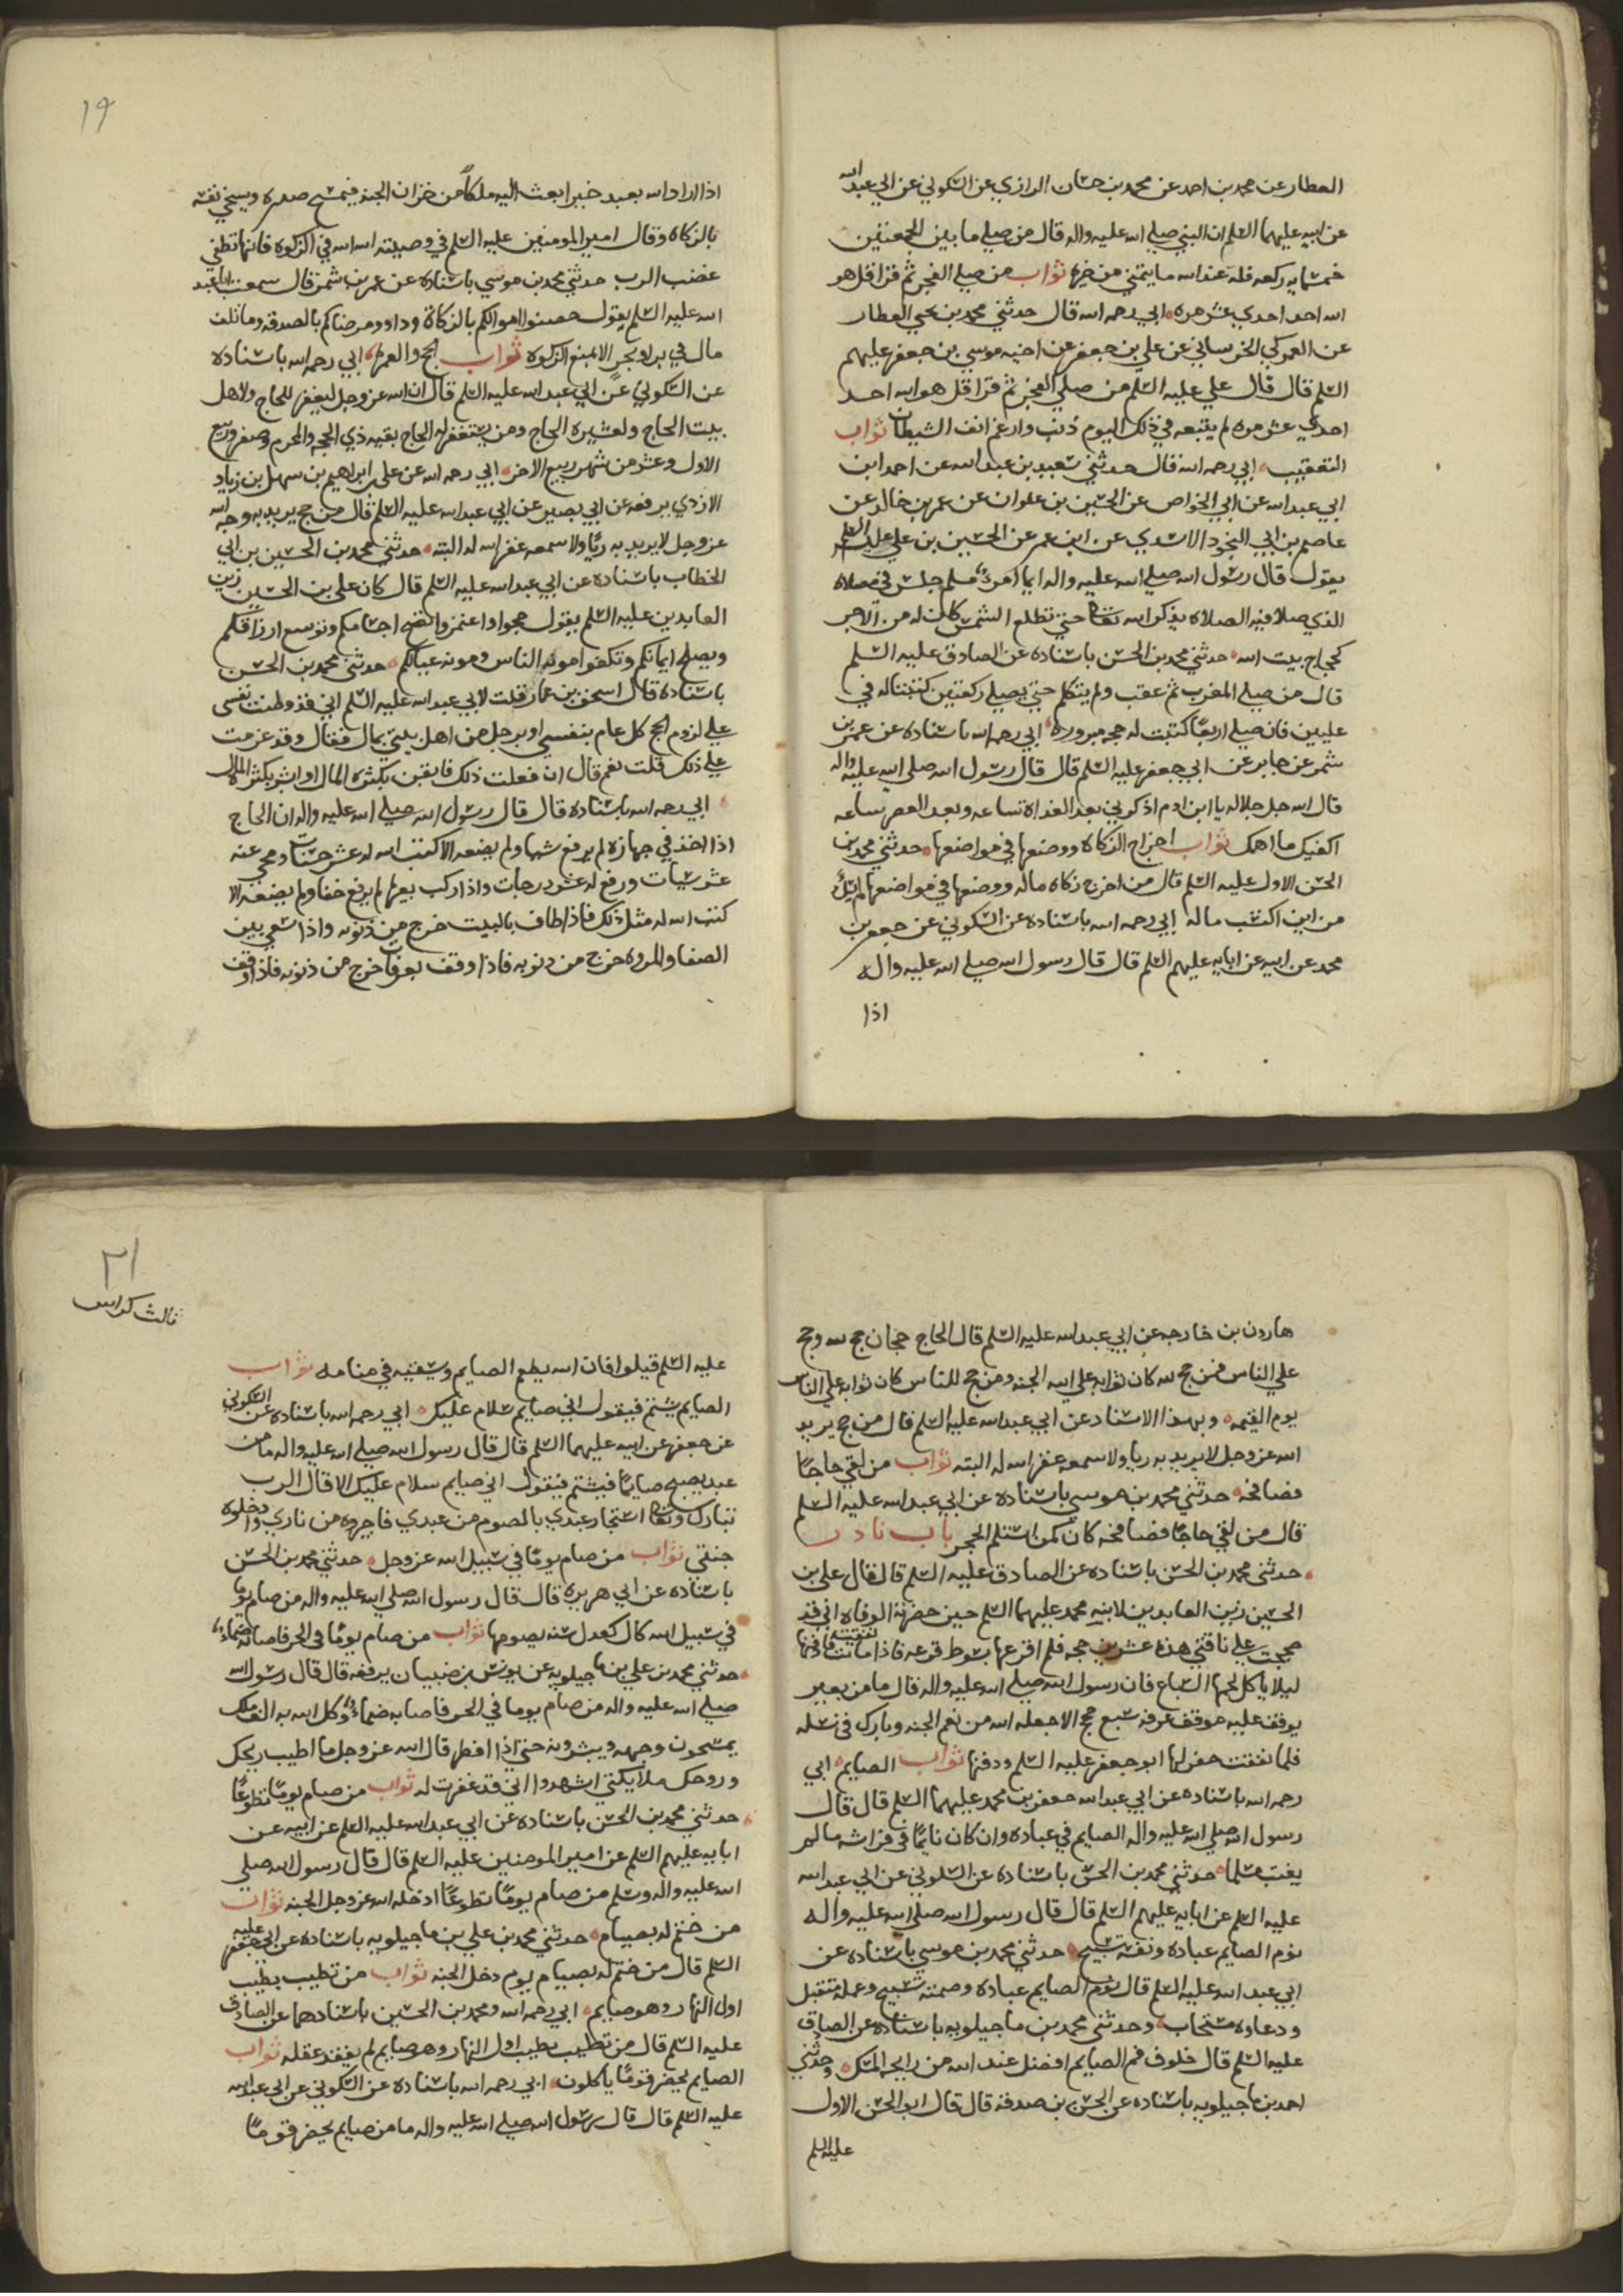 العطار عن محمد بن احمد عن محمد بن حسان الرازي عن السكوني عن ابي عبد الله
عن ابيه عليهما السلم ان النبي صلي الله عليه واله قال من صلي ما بين الجمعتين
خمسمايه ركعه فله عند الله ما يتمني من خير ثواب من صلي الفجر ثم قرا قل هو
الله احد احدي عشر مره ابي رحمه الله قال حدثني محمد بن يحيي العطار
عن العمركي الخرساني عن علي بن جعفر عن اخيه موسي بن جعفر عليهم
السلم قال قال علي عليه السلم من صلي الفجر ثم قرا قل هو الله احد
احدي عشر مره لم يتبعه في ذلك اليوم ذنب وارغم انف الشيطان ثواب
التعقيب ابي رحمه الله قال حدثني سعيد بن عبد الله عن احمد ابن
ابي عبد الله عن ابي الخواص عن الحسين بن علوان عن عمر بن خالد عن
عاصم بن ابي النجود الاسدي عن ابن عمر عن الحسين بن علي عليه السلم
يقول قال رسول الله صلي الله عليه واله ايما امرء مسلم جلس في مصلاه
الذي صلا فيه الصلاه يذكر الله تعا حتي تطلع الشمس كان له من الاجر
كحجاج بيت الله حدثني محمد بن الحسن باسناده عن الصادق عليه السلم
قال من صلي المغرب ثم عقب ولم يتكلم حتي يصلي ركعتين كتبتا له في
عليين فان صلي اربعا كتبت له حجه مبروره ابي رحمه الله باسناده عن عمر بن
شمر عن جابر عن ابي جعفر عليه السلم قال قال رسول الله صلي الله عليه واله
قال الله جل جلاله يا ابن ادم اذكرني بعد الغداه ساعه وبعد العصر ساعه
اكفيك ما اهمك ثواب اخراج الزكاه ووضعها في مواضعها حدثني محمد بن
الحسن الاول عليه السلم قال من اخرج زكاه ماله ووضعها في مواضعها لم يسل
من اين اكتسب ماله ابي رحمه الله باسناده عن السكوني عن جعفر بن
محمد عن ابيه عن ابايه عليهم السلم قال قال رسول الله صلي الله عليه واله
اذا
١٩
اذا اراد الله بعبد خيرا بعث اليه ملكا من خزان الجنه فيمسح صدره ويسخي نفسه
بالزكاه وقال امير المومنين عليه السلم في وصيته الله الله في الزكوه فانها تطفي
غضب الرب حدثني محمد بن موسي باسناده عن عمر بن شمر قال سمعت ابا عبد
الله عليه السلم يقول حصنوا اموالكم بالزكاة وداوو مرضاكم بالصدقه وما تلف
مال في بر او بحر الا بمنع الزكوه ثواب الحج والعمره ابي رحمه الله باسناده
عن السكوني عن ابي عبد الله عليه السلم قال ان الله عز وجل ليغفر للحاج ولاهل
بيت الحاج ولعشيره الحاج ومن يستغفر له الحاج بقيه ذي الحجه والمحرم وصفر وربيع
الاول وعشر من شهر ربيع الاخر ابي رحمه الله عن علي بن ابراهيم بن سهل بن زياد
الازدي يرفعه عن ابي بصير عن ابي عبد الله عليه السلم قال من حج يريد به وجه الله
عز وجل لا يريد به ريا ولا سمعه غفر الله له البته حدثني محمد بن الحسين بن ابي
الخطاب باسناده عن ابي عبد الله عليه السلم قال كان علي بن الحسين زين
العابدين عليه السلم يقول حجوا واعتمروا تصح اجسامكم وتوسع ارزاقكم
ويصلح ايمانكم وتكفوا مونه الناس ومونه عيالكم حدثني محمد بن الحسن
باسناده قال اسحق بن عمار قلت لابي عبد الله عليه السلم اني قد وطنت نفسي
علي لزوم الحج كل عام بنفسي او برجل من اهل بيتي بمال فقال وقد عزمت
علي ذلك قلت نعم قال ان فعلت ذلك فايقن بكثره المال او ابشر بكثره المال
ابي رحمه الله باسناده قال قال رسول الله صلي الله عليه واله ان الحاج
اذا اخذ في جهازه لم يرفع شيا ولم يضعه الا كتب الله له عشر حسنات ومحي عنه
عشر سيات ورفع له عشر درجات واذا ركب بعيره لم يرفع خفا ولم يضعه الا
كتب الله له مثل ذلك فاذا طاف بالبيت خرج من ذنوبه واذا سعي بين
الصفا والمروه خرج من ذنوبه فاذا وقف بعرفات خرج من ذنوبه فاذا وقف
هارون بن خارجه عن ابي عبد الله عليه السلم قال الحاج حجان حج لله وحج
علي الناس فمن حج لله كان ثوابه علي الله الجنه ومن حج للناس كان ثوابه علي الناس
يوم القيمه وبهذا الاسناد عن ابي عبد الله عليه السلم قال من حج يريد
الله عز وجل لا يريد به ريا ولا سمعه غفر الله له البته ثواب من لقي حاجا
فصافحه حدثني محمد بن موسي باسناده عن ابي عبد الله عليه السلم
قال من لقي حاجا فصافحه كان كمن استلم الحجر باب نادر
حدثني محمد بن الحسن باسناده عن الصادق عليه السلم قال قال علي بن
الحسين زين العابدين لابنه محمد عليهما السلم حين حضرته الوفاه اني قد
حججت علي ناقتي هذه عشرين حجه فلم اقرعها بسوط قرعه فاذا ماتت نفقت فادفنها
ليلا ياكل لحمها السباع فان رسول الله صلي الله عليه واله قال ما من بعير
يوقف عليه موقف عرفه سبع حجج الا جعله الله من نعم الجنه وبارك في نسله
فلما نفقت حفر لها ابو جعفر عليه السلم ودفنها ثواب الصايم ابي
رحمه الله باسناده عن ابي عبد الله جعفر بن محمد عليهما السلم قال قال
رسول الله صلي الله عليه واله الصايم في عباده وان كان نايما في فراشه ما لم
يغتب مسلما حدثني محمد بن الحسن باسناده عن السكوني عن ابي عبد الله
عليه السلم عن ابايه عليهم السلم قال قال رسول الله صلي الله عليه واله
نوم الصايم عباده ونفسه تسبيح حدثني محمد بن موسي باسناده عن
ابي عبد الله عليه السلم قال نوم الصايم عباده وصمته تسبيح وعمله متقبل
ودعاوه مستجاب وحدثني محمد بن ماجيلويه باسناده عن الصادق
عليه السلم قال خلوف فم الصايم افضل عند الله من رايحه المسك وحدثني
احمد بن ماجيلويه باسناده عن الحسن بن صدقه قال قال ابو الحسن الاول
عليه السلم
٢١
ثالث كراس
عليه السلم قيلوا فان الله يطعم الصايم ويسقيه في منامه ثواب
الصايم يشتم فيقول اني صايم سلام عليك ابي رحمه الله باسناده عن السكوني
عن جعفر عن ابيه عليهما السلم قال قال رسول الله صلي الله عليه واله ما من
عبد يصبح صايما فيشتم فيقول اني صايم سلام عليك الا قال الرب
تبارك وتعا استجار عبدي بالصوم من عبدي فاجيروه من ناري وادخلوه
جنتي ثواب من صام يوما في سبيل الله عز وجل حدثني محمد بن الحسن
باسناده عن ابي هريره قال قال رسول الله صلي الله عليه واله من صام يوما
في سبيل الله كان كعدل سنه يصومها ثواب من صام يوما في الحر فاصابه ضماء
حدثني محمد بن علي بن ماجيلويه عن يونس بن ضبيان يرفعه قال قال رسول الله
صلي الله عليه واله من صام يوما في الحر فاصابه ضماء وكل الله به الف ملك
يمسحون وجهه ويبشرونه حتي اذا افطر قال الله عز وجل ما اطيب ريحك
وروحك ملايكتي اشهدوا اني قد غفرت له ثواب من صام يوما تطوعا
حدثني محمد بن الحسن باسناده عن ابي عبد الله عليه السلم عن ابيه عن
ابايه عليهم السلم عن امير المومنين عليه السلم قال قال رسول الله صلي
الله عليه واله وسلم من صام يوما تطوعا ادخله الله عز وجل الجنه ثواب
من ختم له بصيام حدثني محمد بن علي بن ماجيلويه باسناده عن ابي جعفر عليه
السلم قال من ختم له بصيام يوم دخل الجنه ثواب من تطيب بطيب
اول النهار وهو صايم ابي رحمه الله ومحمد بن الحسين باسنادهما عن الصادق
عليه السلم قال من تطيب بطيب اول النهار وهو صايم لم يفقد عقله ثواب
الصايم يحضر قوما ياكلون ابي رحمه الله باسناده عن السكوني عن ابي عبد الله
عليه السلم قال قال رسول الله صلي الله عليه واله ما من صايم يحضر قوما